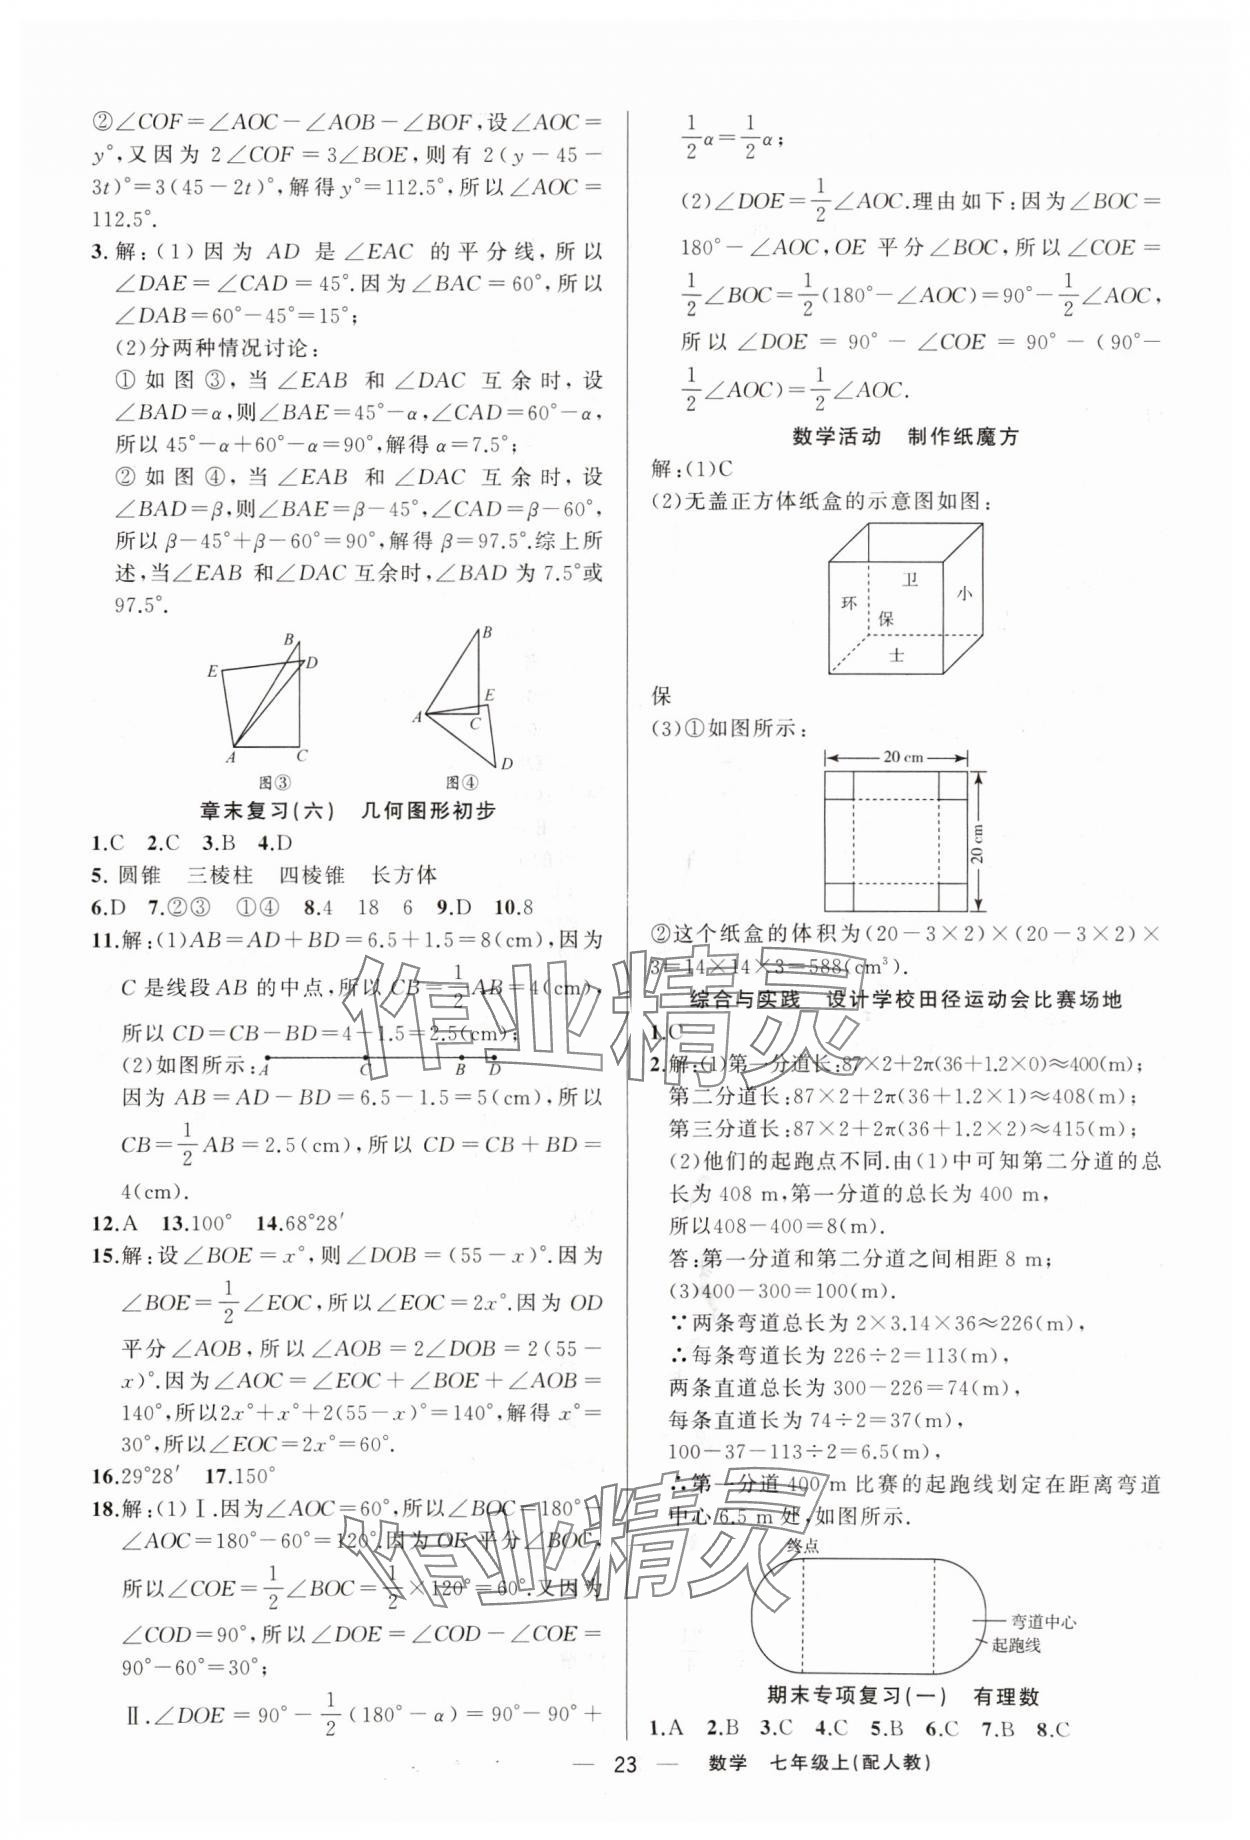 ②∠COF=∠AOC-∠AOB-∠BOF,设∠AOC=
y°,又因为 2∠COF=3∠BOE,则有 2(y-45-
3t)°=3(45-2t)°,解得y°=112.5°,所以∠AOC=
112.5°.
3.解:(1)因为 AD 是∠EAC 的平分线,所以
∠DAE=∠CAD=45°.因为∠BAC=60°,所以
∠DAB=60°-45°=15°;
(2)分两种情况讨论:
①如图③,当∠EAB 和∠DAC 互余时,设
∠BAD=α,则∠BAE=45°-α,∠CAD=60°-α,
所以 45°-α+60°-α=90°,解得 α=7.5°;
②如图④,当∠EAB 和∠DAC 互余时,设
∠BAD=β,则∠BAE=β-45°,∠CAD=β-60°,
所以 β-45°+β-60°=90°,解得 β=97.5°.综上所
述,当∠EAB 和∠DAC 互余时,∠BAD 为 7.5°或
97.5°.
B
D
E
A
C
图③
B
E
A
C
D
图④
章末复习(六) 几何图形初步
1.C 2.C 3.B 4.D
5.圆锥 三棱柱 四棱锥 长方体
6.D 7.②③ ①④ 8.4 18 6 9.D 10.8
11.解:(1)AB=AD+BD=6.5+1.5=8(cm),因为
C 是线段 AB 的中点,所以 CB=1/2 AB=4(cm),
所以 CD=CB-BD=4-1.5=2.5(cm);
(2)如图所示: A C B D
因为 AB=AD-BD=6.5-1.5=5(cm),所以
CB=1/2 AB=2.5(cm),所以 CD=CB+BD=
4(cm).
12.A 13.100° 14.68°28′
15.解:设∠BOE=x°,则∠DOB=(55-x)°.因为
∠BOE=1/2∠EOC,所以∠EOC=2x°.因为 OD
平分∠AOB,所以∠AOB=2∠DOB=2(55-
x)°.因为∠AOC=∠EOC+∠BOE+∠AOB=
140°,所以2x°+x°+2(55-x)°=140°,解得 x°=
30°,所以∠EOC=2x°=60°.
16.29°28′ 17.150°
18.解:(1)Ⅰ.因为∠AOC=60°,所以∠BOC=180°-
∠AOC=180°-60°=120°.因为 OE 平分∠BOC,
所以∠COE=1/2∠BOC=1/2×120°=60°.又因为
∠COD=90°,所以∠DOE=∠COD-∠COE=
90°-60°=30°;
Ⅱ.∠DOE=90°-1/2(180°-α)=90°-90°+
1/2 α=1/2 α;
(2)∠DOE=1/2∠AOC.理由如下:因为∠BOC=
180°-∠AOC,OE 平分∠BOC,所以∠COE=
1/2∠BOC=1/2(180°-∠AOC)=90°-1/2∠AOC,
所以∠DOE=90°-∠COE=90°-(90°-
1/2∠AOC)=1/2∠AOC.
数学活动 制作纸魔方
解:(1)C
(2)无盖正方体纸盒的示意图如图:
卫
环
小
保
士
保
(3)①如图所示:
20 cm
20 cm
②这个纸盒的体积为(20-3×2)×(20-3×2)×
3=14×14×3=588(cm³).
综合与实践 设计学校田径运动会比赛场地
1.C
2.解:(1)第一分道长:87×2+2π(36+1.2×0)≈400(m);
第二分道长:87×2+2π(36+1.2×1)≈408(m);
第三分道长:87×2+2π(36+1.2×2)≈415(m);
(2)他们的起跑点不同.由(1)中可知第二分道的总
长为 408 m,第一分道的总长为 400 m,
所以408-400=8(m).
答:第一分道和第二分道之间相距 8 m;
(3)400-300=100(m).
∵两条弯道总长为 2×3.14×36≈226(m),
∴每条弯道长为 226÷2=113(m),
两条直道总长为 300-226=74(m),
每条直道长为 74÷2=37(m),
100-37-113÷2=6.5(m),
∴第一分道 400 m 比赛的起跑线划定在距离弯道
中心 6.5 m 处,如图所示.
终点
弯道中心
起跑线
期末专项复习(一) 有理数
1.A 2.B 3.C 4.C 5.B 6.C 7.B 8.C
— 23 — 数学 七年级上(配人教)
作业精灵
作业精灵